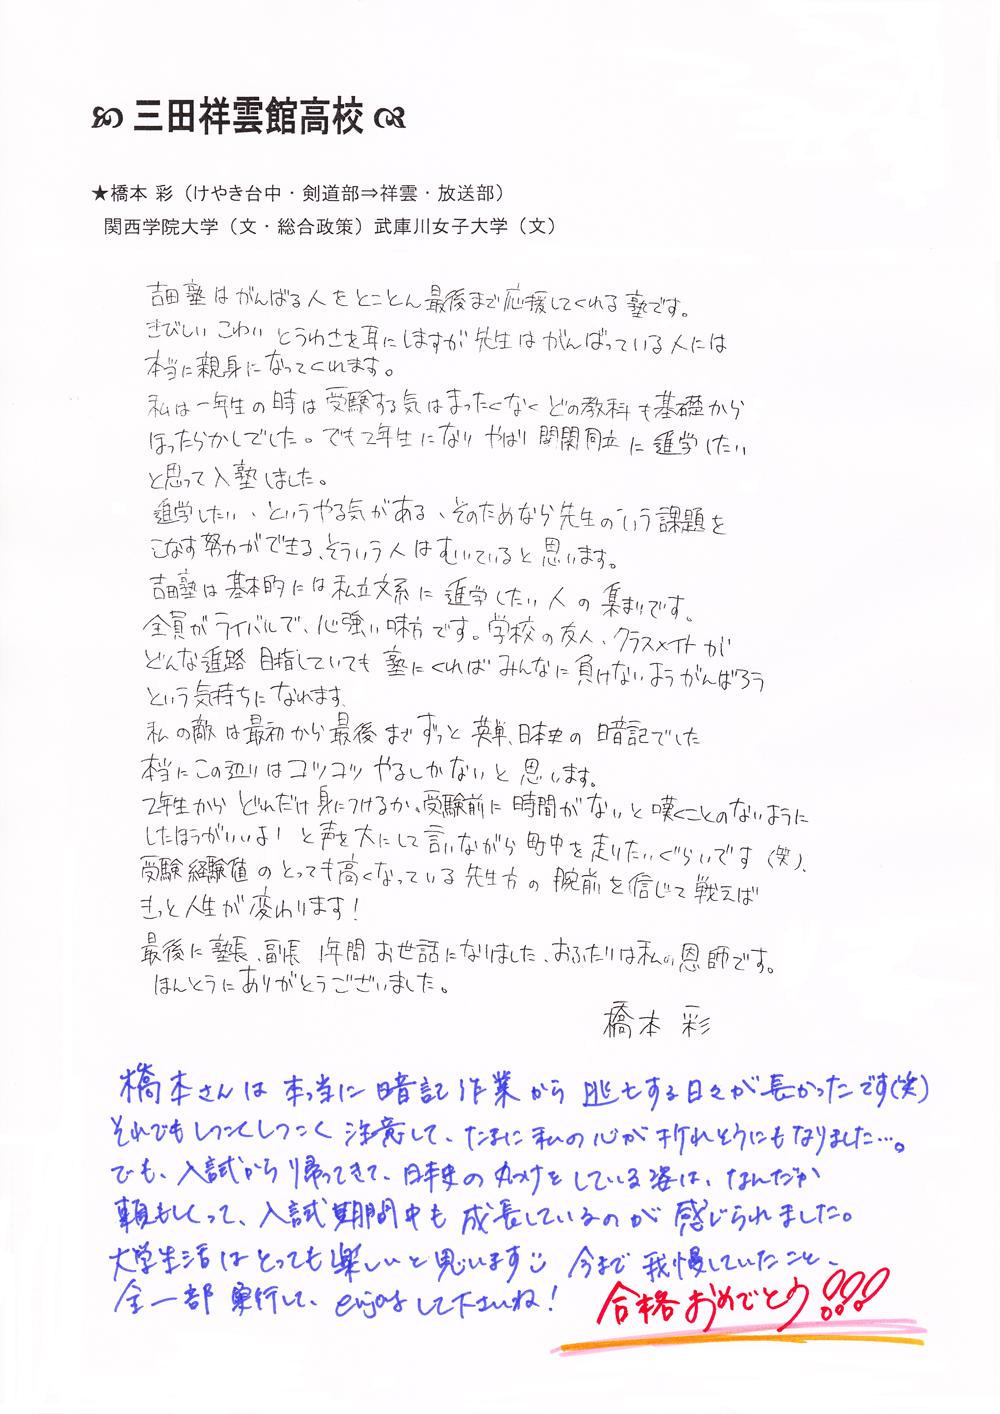 三田祥雲館高校
★橋本 彩（けやき台中・剣道部⇒祥雲・放送部）
関西学院大学（文・総合政策）武庫川女子大学（文）
吉田塾はがんばる人をとことん最後まで応援してくれる塾です。
きびしい こわい とうわさを耳にしますが先生はがんばっている人には
本当に親身になってくれます。
私は一年生の時は受験する気はまったくなく どの教科も基礎から
ほったらかしでした。でも2年生になり やはり 関関同立に進学したい
と思って入塾しました。
進学したい、というやる気がある、そのためなら先生のいう課題を
こなす努力ができる、そういう人はむいていると思います。
吉田塾は基本的には私立文系に進学したい人の集まりです。
全員がライバルで、心強い味方です。学校の友人、クラスメイトが
どんな進路 目指していても 塾にくれば みんなに負けないようがんばろう
という気持ちになれます、
私の敵は最初から最後まで ずっと 英単、日本史の暗記でした
本当にこの辺りはコツコツ やるしかないと思います。
2年生から どれだけ身につけるか、受験前に時間がないと嘆くことのないように
したほうがいいよ！ と声を大にして言いながら町中を走りたいぐらいです（笑）、
受験経験値の とっても高くなっている先生方の腕前を信じて戦えば
きっと人生が変わります！
最後に塾長、副長 1年間お世話になりました、おふたりは私の恩師です。
ほんとうにありがとうございました。
橋本 彩
橋本さんは本当に暗記作業から逃亡する日々が長かったです（笑）
それでもしつこくしつこく注意して、たまに私の心が折れそうにもなりました…。
でも、入試から帰ってきて、日本史の丸つけをしている姿は、なんだか
頼もしくって、入試期間中も成長しているのが感じられました。
大学生活はとっても楽しいと思います 今まで我慢していたこと、
全一部 実行して、enjoyして下さいね！
合格おめでとう!!!